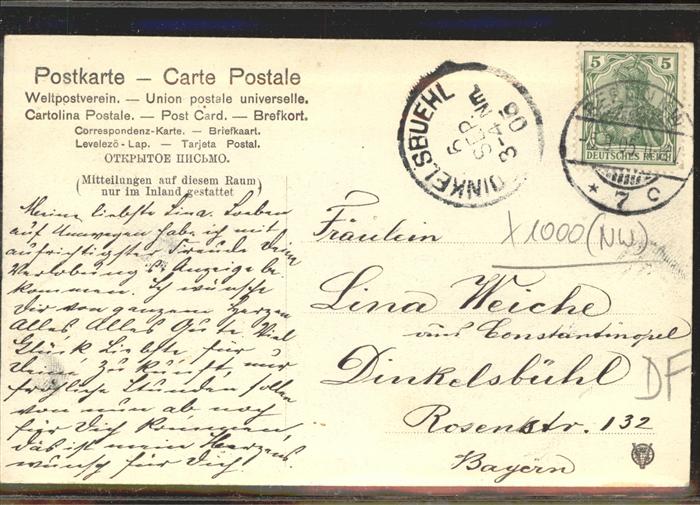 Postkarte – Carte Postale
Weltpostverein. – Union postale universelle.
Cartolina Postale. – Post Card. – Brefkort.
Correspondenz-Karte. – Briefkaart.
Levelező-Lap. – Tarjeta Postal.
ОТКРЫТОЕ ПИСЬМО.
(Mitteilungen auf diesem Raum
nur im Inland gestattet)
Meine liebste Lina. Soeben
auf Umwegen habe ich mit
aufrichtigster Freude Deine
Verlobungs Anzeige be
kommen. Ich wünsche
Dir von ganzem Herzen
Alles Alles Gute. Viel
Glück Liebste für
Deine Zukunft, nur
fröhliche Stunden sollen
von nun ab noch
für Dich kommen,
das ist mein Herzens
wunsch für Dich
DINKELSBUEHL
6
SEP.
3-4 Nm.
5 5
DEUTSCHES REICH
* 7 c
X1000 (NW)
Fräulein
Lina Weiche
aus Constantinopel
Dinkelsbühl
DF
Rosenstr. 132
Bayern